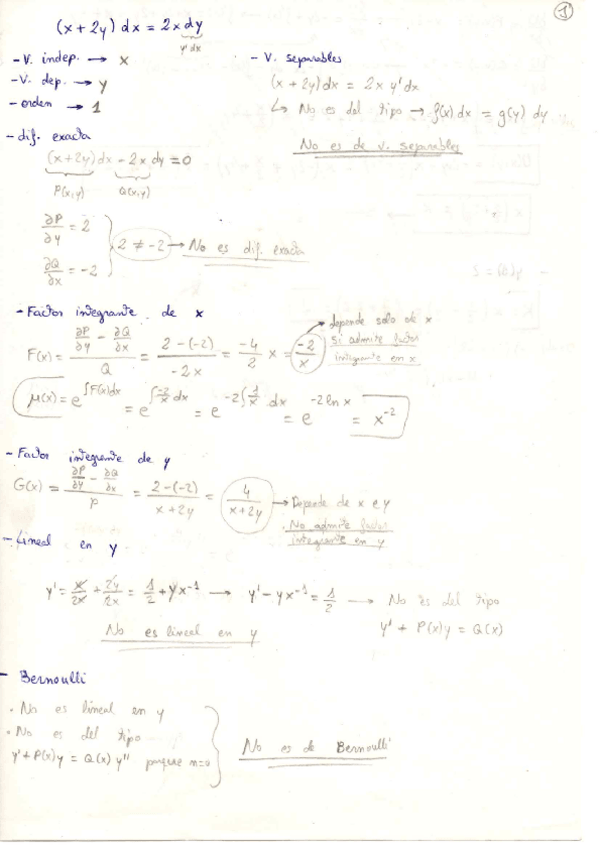 1
(x + 2y) dx = 2x dy
y' dx
- V. indep. → x
- V. dep. → y
- orden → 1
- V. separables
(x + 2y) dx = 2x y' dx
↳ No es del tipo → f(x) dx = g(y) dy
No es de v. separables
- dif. exacta
(x+2y) dx - 2x dy = 0
P(x,y) Q(x,y)
∂P/∂y = 2
∂Q/∂x = -2
2 ≠ -2 → No es dif. exacta
- Factor integrante de x
F(x) = (∂P/∂y - ∂Q/∂x)/Q = (2-(-2))/(-2x) = -4/2 x = -2/x
depende solo de x
Si admite factor
integrante en x
μ(x) = e^∫F(x)dx = e^∫-2/x dx = e^-2∫1/x dx = e^-2 ln x = x^-2
- Factor integrante de y
G(x) = (∂P/∂y - ∂Q/∂x)/P = (2-(-2))/(x+2y) = 4/(x+2y) → Depende de x e y
. No admite factor
integrante en y
- Lineal en y
y' = x/2x + 2y/2x = 1/2 + yx^-1 → y' - yx^-1 = 1/2 → No es del tipo
y' + P(x)y = Q(x)
No es lineal en y
- Bernoulli
. No es lineal en y
. No es del tipo
y' + P(x)y = Q(x) y^n porque n=0
No es de Bernoulli